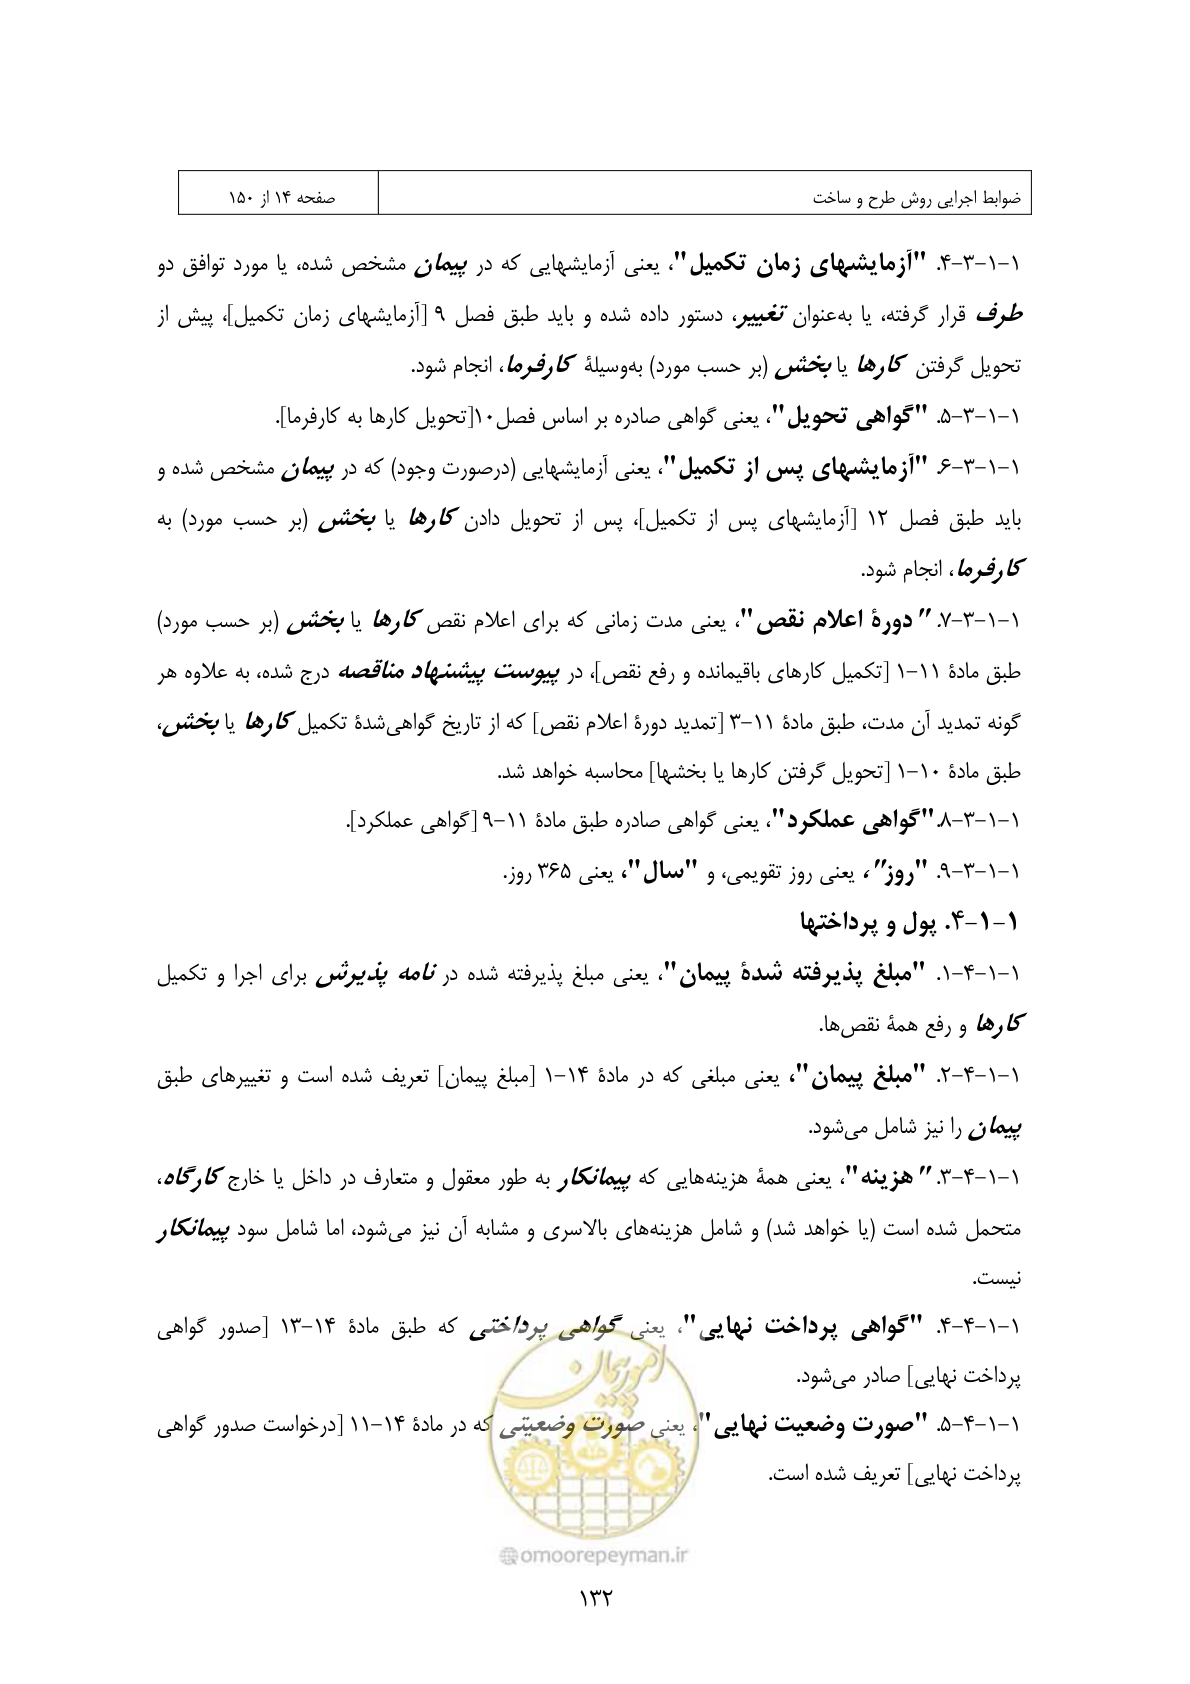 ضوابط اجرایی روش طرح و ساخت
صفحه ۱۴ از ۱۵۰
۱-۱-۳-۴. "آزمایشهای زمان تکمیل"، یعنی آزمایشهایی که در پیمان مشخص شده، یا مورد توافق دو
طرف قرار گرفته، یا به‌عنوان تغییر، دستور داده شده و باید طبق فصل ۹ [آزمایشهای زمان تکمیل]، پیش از
تحویل گرفتن کارها یا بخش (بر حسب مورد) به‌وسیلۀ کارفرما، انجام شود.
۱-۱-۳-۵. "گواهی تحویل"، یعنی گواهی صادره بر اساس فصل۱۰[تحویل کارها به کارفرما].
۱-۱-۳-۶. "آزمایشهای پس از تکمیل"، یعنی آزمایشهایی (درصورت وجود) که در پیمان مشخص شده و
باید طبق فصل ۱۲ [آزمایشهای پس از تکمیل]، پس از تحویل دادن کارها یا بخش (بر حسب مورد) به
کارفرما، انجام شود.
۱-۱-۳-۷. "دورۀ اعلام نقص"، یعنی مدت زمانی که برای اعلام نقص کارها یا بخش (بر حسب مورد)
طبق مادۀ ۱۱-۱ [تکمیل کارهای باقیمانده و رفع نقص]، در پیوست پیشنهاد مناقصه درج شده، به علاوه هر
گونه تمدید آن مدت، طبق مادۀ ۱۱-۳ [تمدید دورۀ اعلام نقص] که از تاریخ گواهی‌شدۀ تکمیل کارها یا بخش،
طبق مادۀ ۱۰-۱ [تحویل گرفتن کارها یا بخشها] محاسبه خواهد شد.
۱-۱-۳-۸."گواهی عملکرد"، یعنی گواهی صادره طبق مادۀ ۱۱-۹ [گواهی عملکرد].
۱-۱-۳-۹. "روز"، یعنی روز تقویمی، و "سال"، یعنی ۳۶۵ روز.
۱-۱-۴. پول و پرداختها
۱-۱-۴-۱. "مبلغ پذیرفته شدۀ پیمان"، یعنی مبلغ پذیرفته شده در نامه پذیرش برای اجرا و تکمیل
کارها و رفع همۀ نقص‌ها.
۱-۱-۴-۲. "مبلغ پیمان"، یعنی مبلغی که در مادۀ ۱۴-۱ [مبلغ پیمان] تعریف شده است و تغییرهای طبق
پیمان را نیز شامل می‌شود.
۱-۱-۴-۳. "هزینه"، یعنی همۀ هزینه‌هایی که پیمانکار به طور معقول و متعارف در داخل یا خارج کارگاه،
متحمل شده است (یا خواهد شد) و شامل هزینه‌های بالاسری و مشابه آن نیز می‌شود، اما شامل سود پیمانکار
نیست.
۱-۱-۴-۴. "گواهی پرداخت نهایی"، یعنی گواهی پرداختی که طبق مادۀ ۱۴-۱۳ [صدور گواهی
پرداخت نهایی] صادر می‌شود.
۱-۱-۴-۵. "صورت وضعیت نهایی"، یعنی صورت وضعیتی که در مادۀ ۱۴-۱۱ [درخواست صدور گواهی
پرداخت نهایی] تعریف شده است.
امور پیمان
@omoorepeyman.ir
۱۳۲